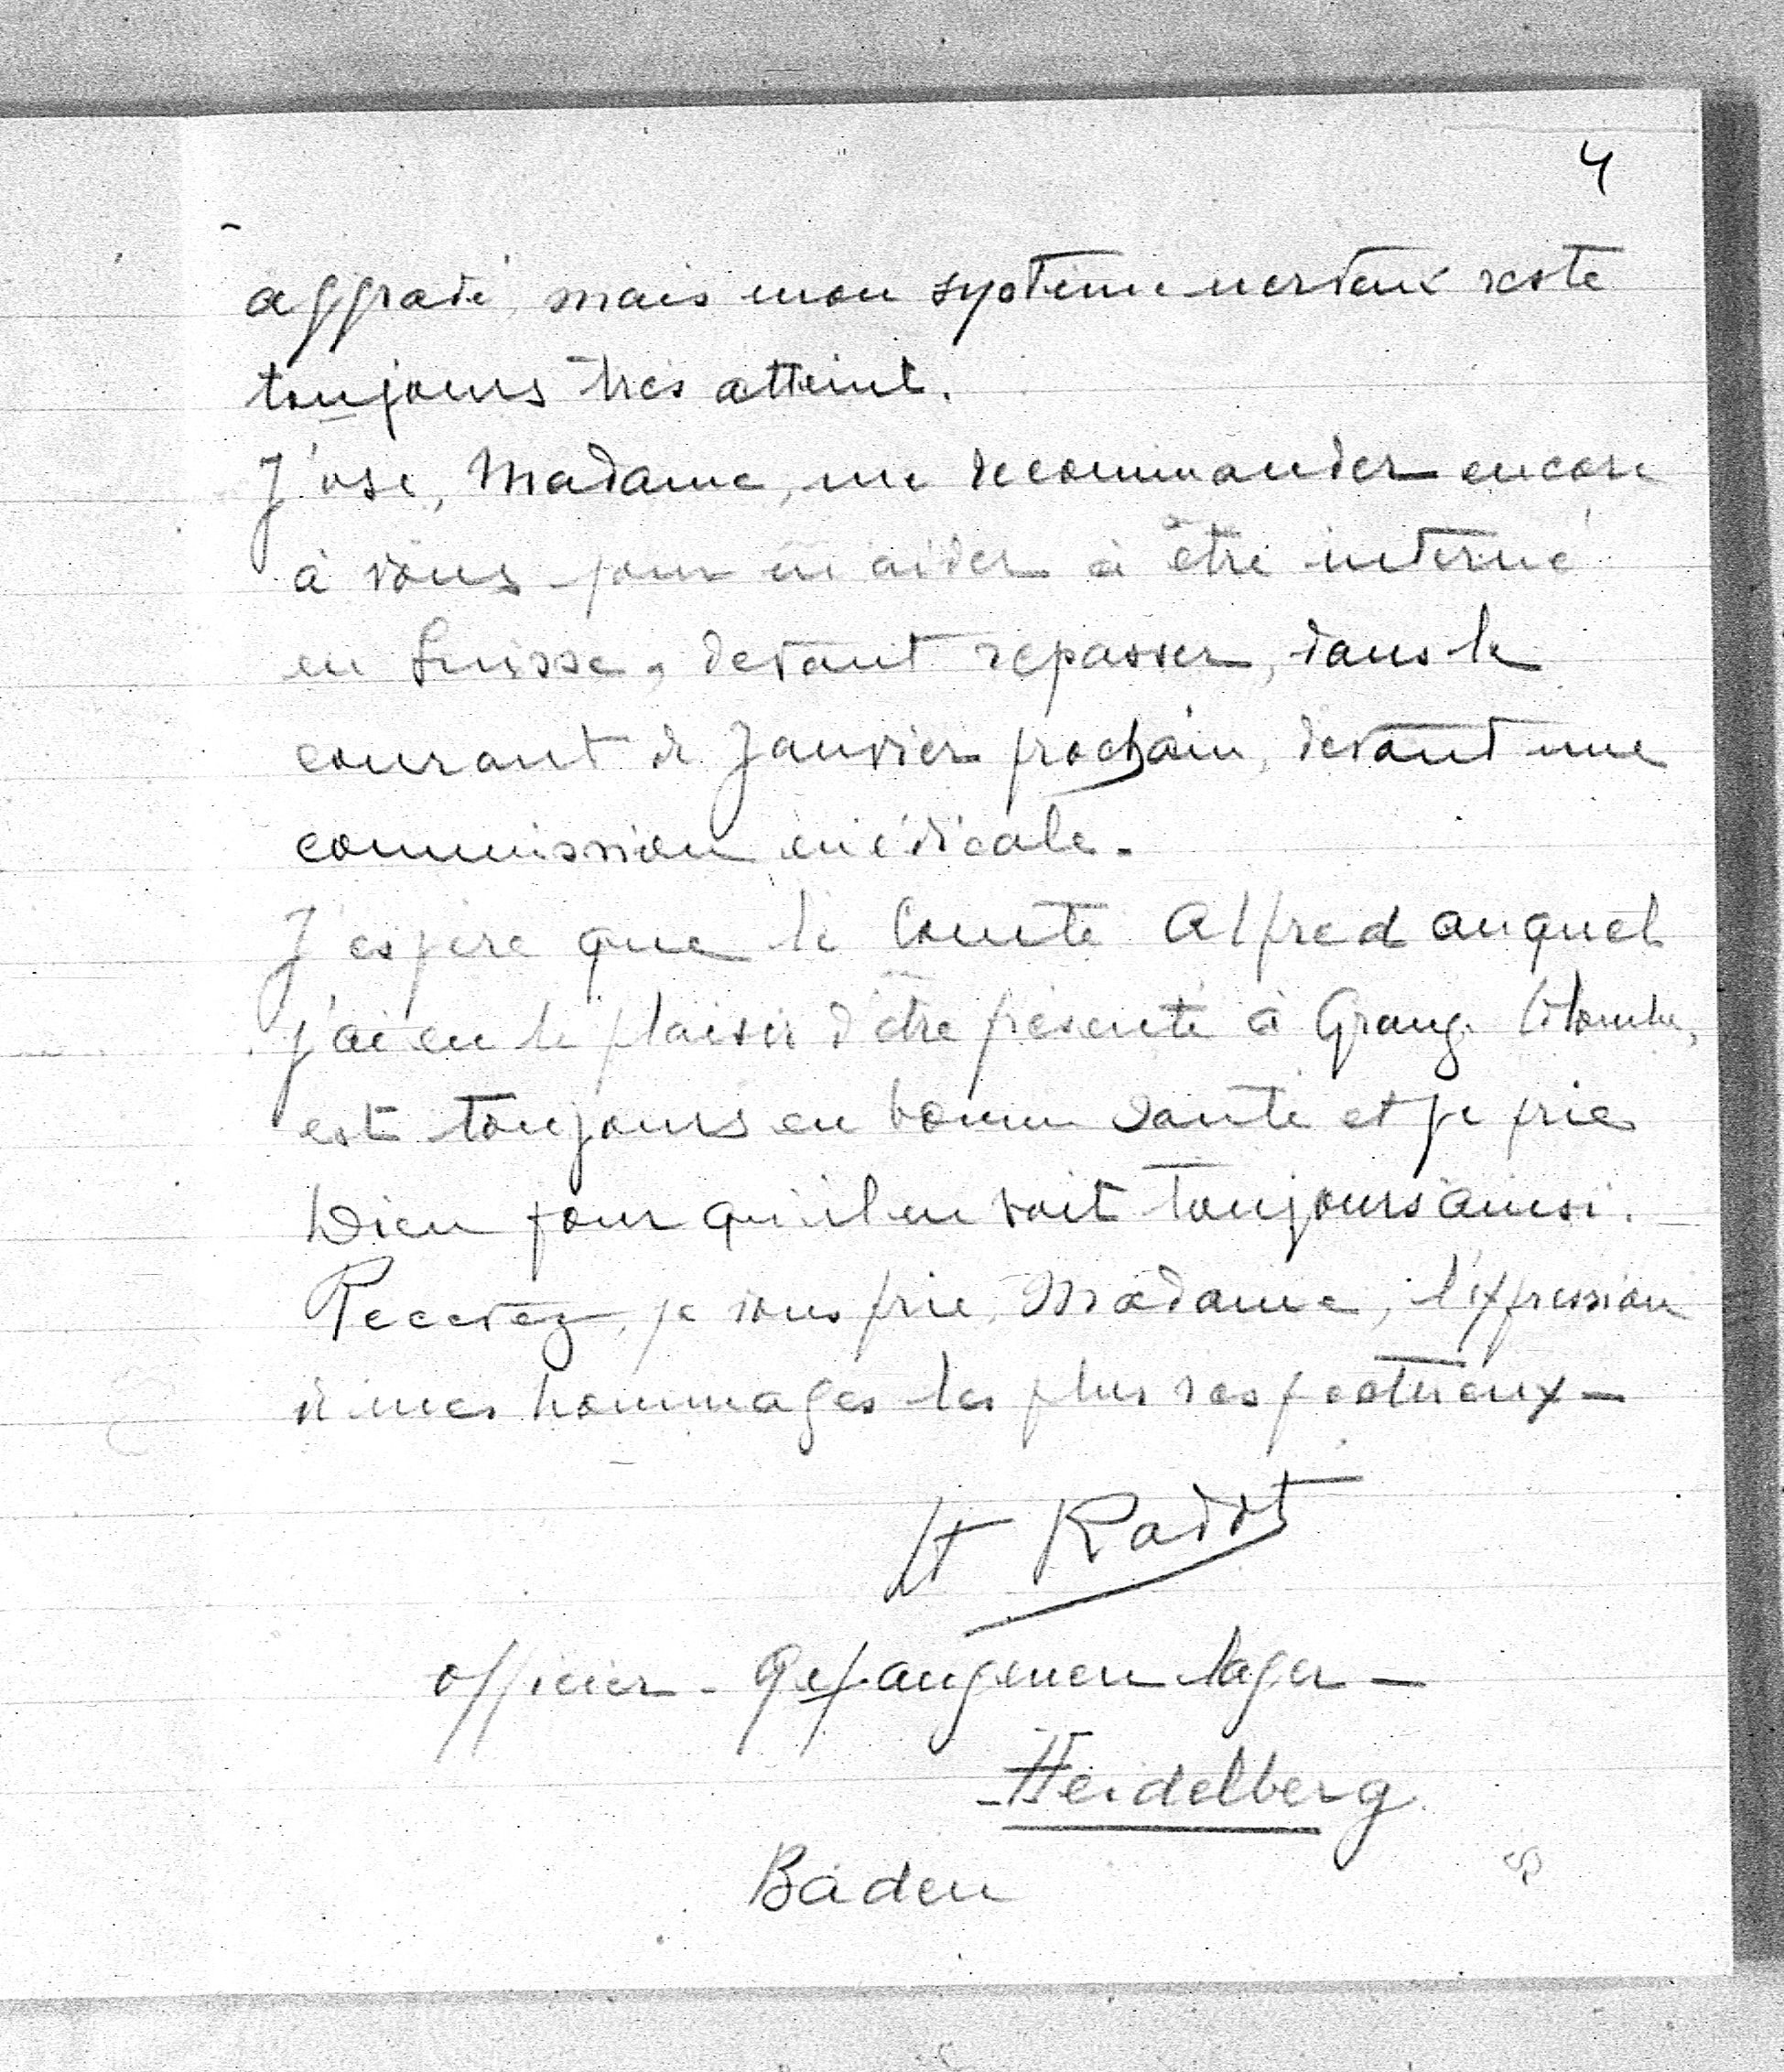 4
aggravé, mais mon système nerveux reste
toujours très atteint.
J'ose, Madame, me recommander encore
à vous pour m'aider à être interné
en Suisse, devant repasser, dans le
courant de Janvier prochain, devant une
commission médicale.
J'espère que le Comte Alfred auquel
j'ai eu le plaisir d'être présenté à Grang.
est toujours en bonne santé et je prie
Dieu pour qu'il en soit toujours ainsi.
Recevez, je vous prie, Madame, l'expression
de mes hommages les plus respectueux -
Lt Radot
Officier - Gefangenenlager -
- Heidelberg
Baden